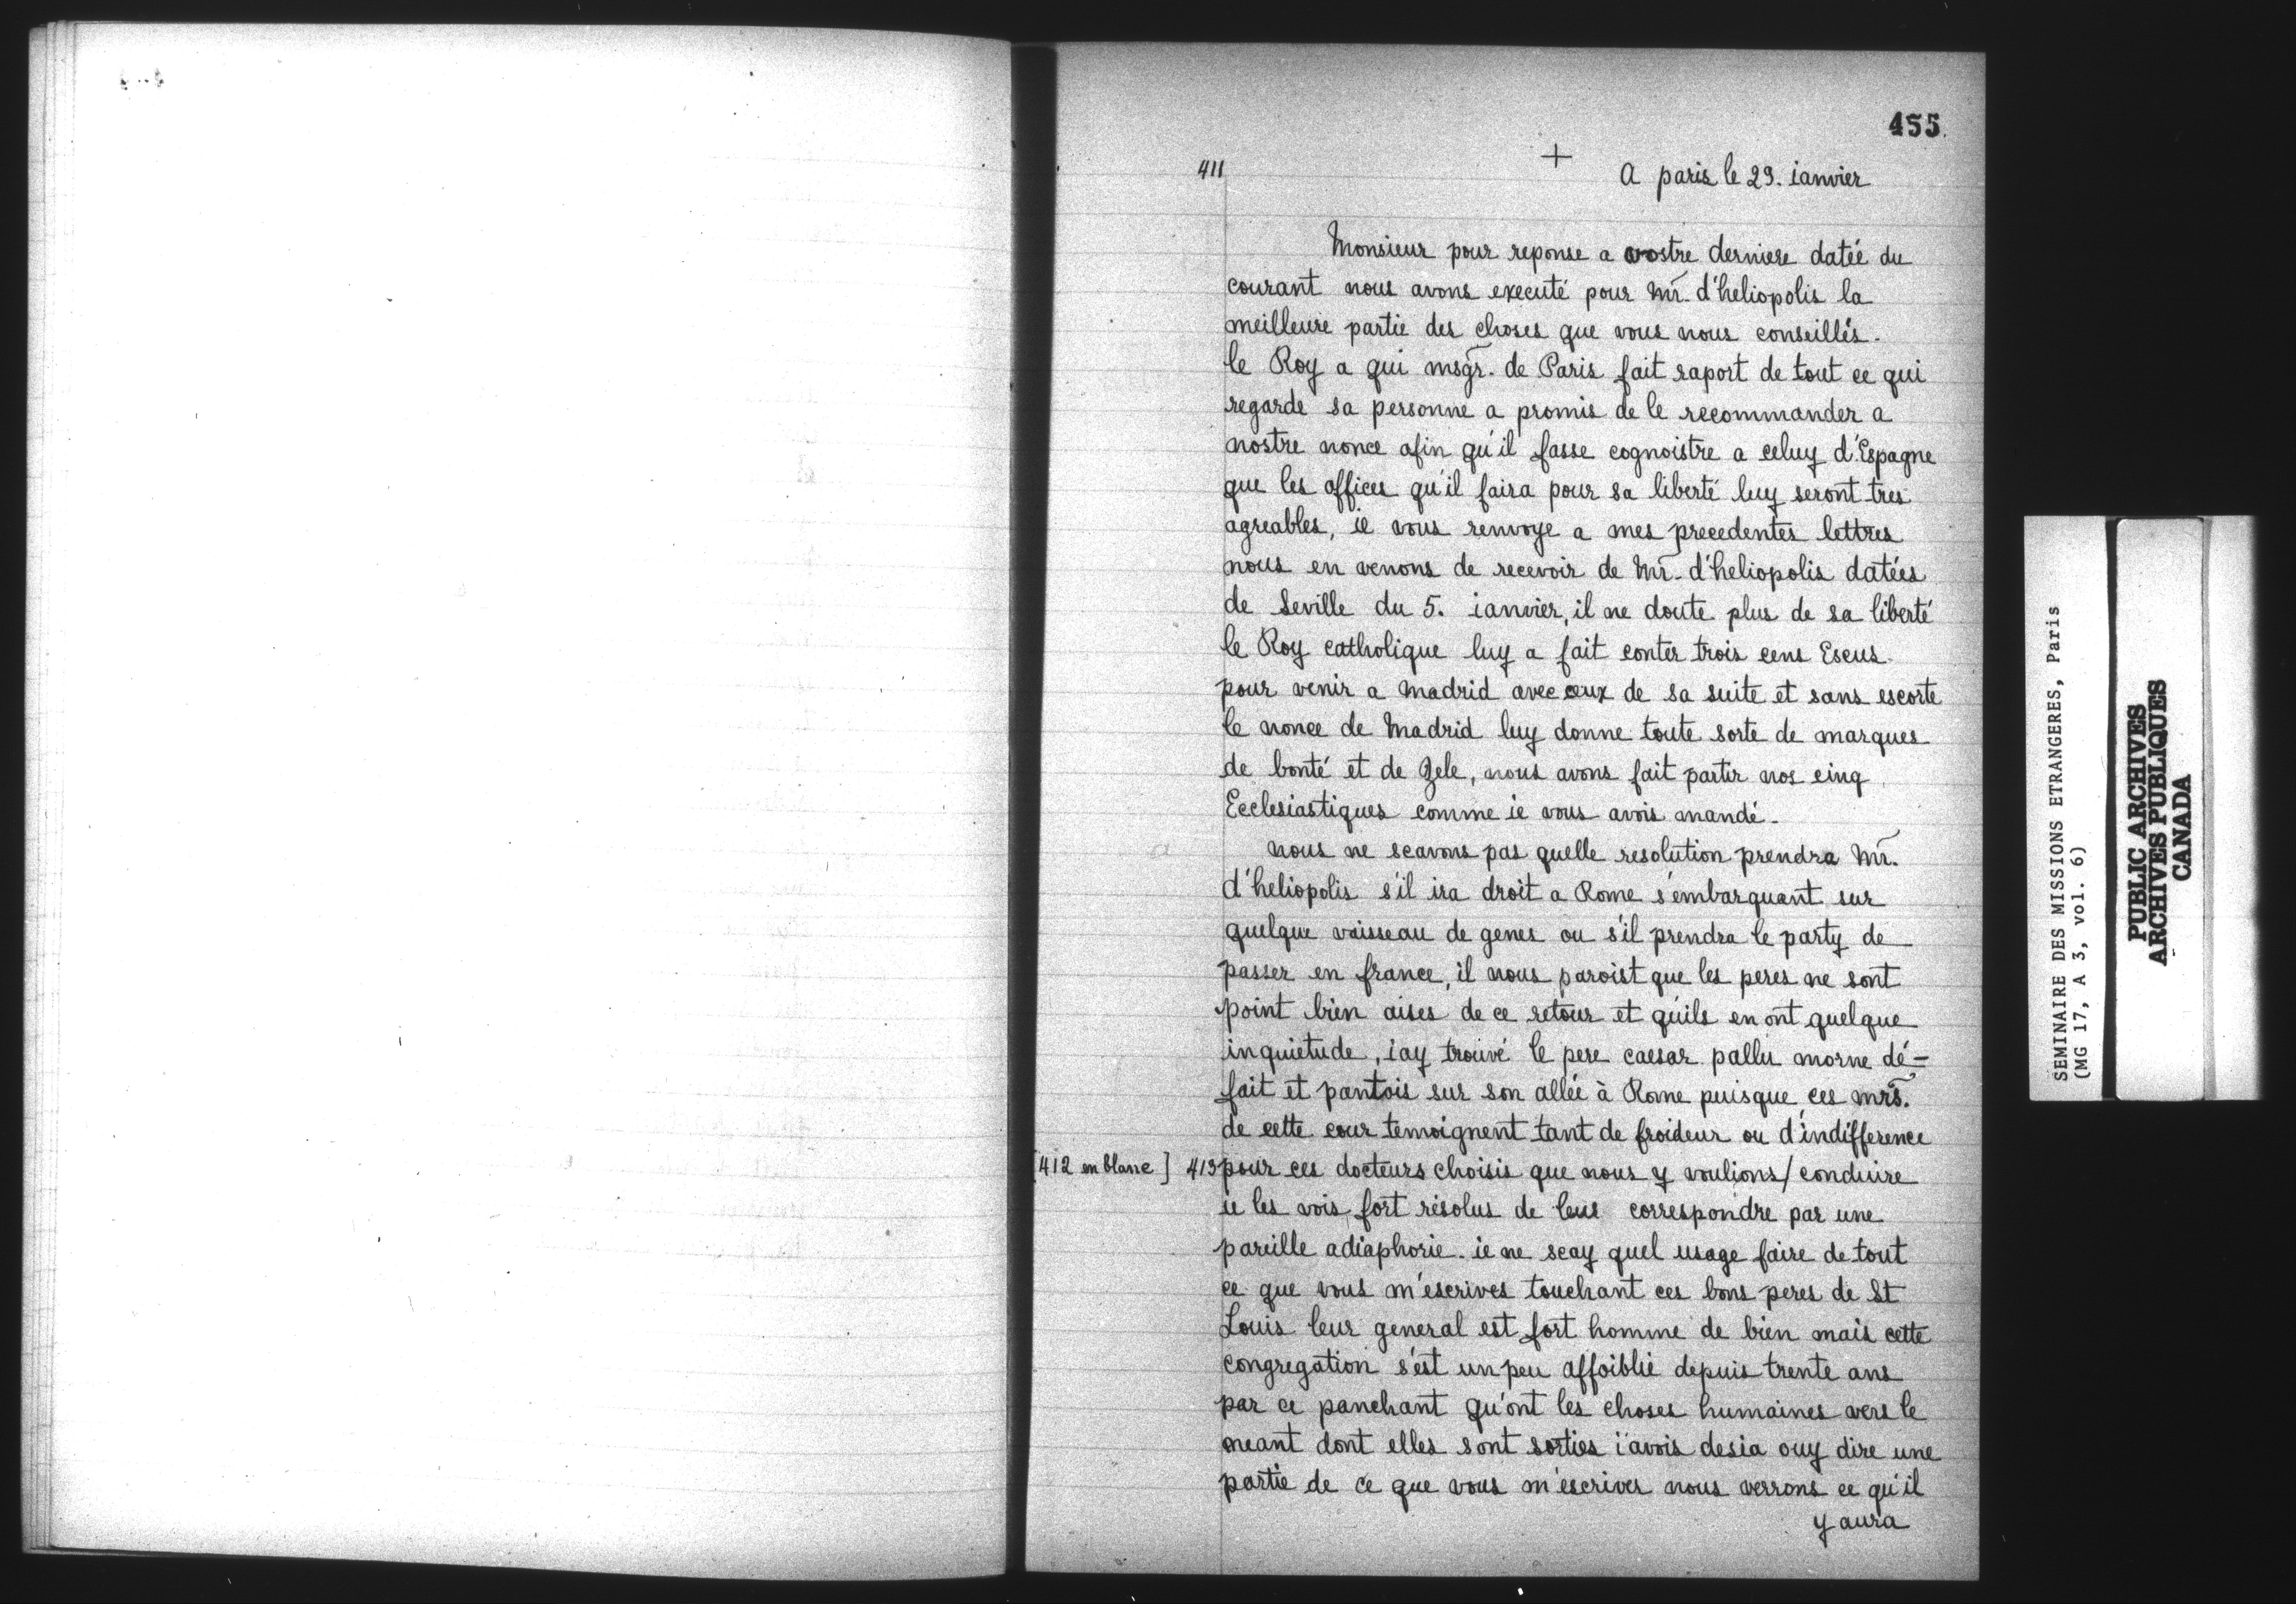 455.
411
+
A paris le 29. ianvier
Monsieur pour reponse a vostre derniere datéé du
courant nous avons executé pour Mr. d'heliopolis la
meilleure partie des choses que vous nous conseillés.
le Roy a qui msgr. de Paris fait raport de tout ce qui
regarde sa personne a promis de le recommander a
nostre nonce afin qu'il fasse cognoistre a celuy d'Espagne
que les offices qu'il faira pour sa liberté luy seront tres
agreables, ie vous renvoye a mes precedentes lettres
nous en venons de recevoir de Mr. d'heliopolis datées
de Seville du 5. ianvier, il ne doute plus de sa liberté
le Roy catholique luy a fait conter trois cens Escus
pour venir a Madrid avec ceux de sa suite et sans escorte
le nonce de Madrid luy donne toute sorte de marques
de bonté et de Zele, nous avons fait partir nos cinq
Ecclesiastiques comme ie vous avois mandé.
nous ne scavons pas quelle resolution prendra Mr.
d'heliopolis s'il ira droit a Rome s'embarquant sur
quelque vaisseau de genes ou s'il prendra le party de
passer en france, il nous paroist que les peres ne sont
point bien aises de ce retour et qu'ils en ont quelque
inquietude, i'ay trouvé le pere caesar pallu morne dé-
fait et pantois sur son alléé à Rome puisque ces mrs.
de cette cour temoignent tant de froideur ou d'indifference
[412 en blanc] 413 pour ces docteurs choisis que nous y voulions/conduire
ie les vois fort résolus de leur correspondre par une
pareille adiaphorie. ie ne scay quel usage faire de tout
ce que vous m'escrives touchant ces bons peres de St
Louis leur general est fort homme de bien mais cette
congregation s'est un peu affoiblie depuis trente ans
par ce panchant qu'ont les choses humaines vers le
neant dont elles sont sorties i'avois desia ouy dire une
partie de ce que vous m'escrives nous verrons ce qu'il
y aura
SEMINAIRE DES MISSIONS ETRANGERES, Paris
(MG 17, A 3, vol. 6)
PUBLIC ARCHIVES
ARCHIVES PUBLIQUES
CANADA